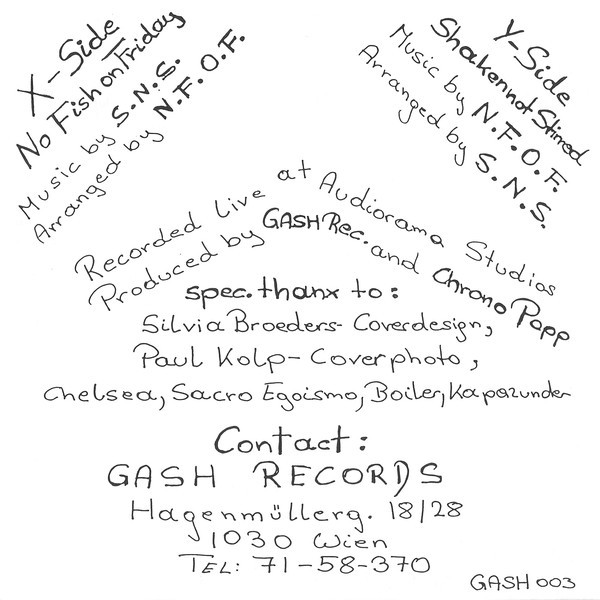 X-Side
No Fish on Friday
Music by S.N.S.
Arranged by N.F.O.F.
Y-Side
Shaken not Stirred
Music by N.F.O.F.
Arranged by S.N.S.
Recorded Live at Audiorama Studios
Produced by GASH Rec. and Chrono Popp
spec. thanx to:
Silvia Broeders- Coverdesign,
Paul Kolp- Coverphoto,
Chelsea, Sacro Egoismo, Boiler, Kapazunder
Contact:
GASH RECORDS
Hagenmüllerg. 18/28
1030 Wien
TEL: 71-58-370
GASH 003